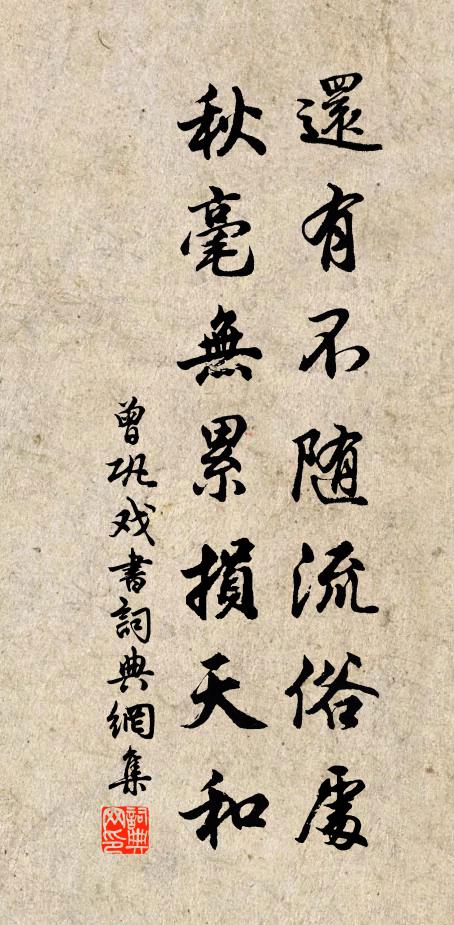 還有不随流俗處
秋毫無累損天和
曾巩戏書詞典網集
詞典網印